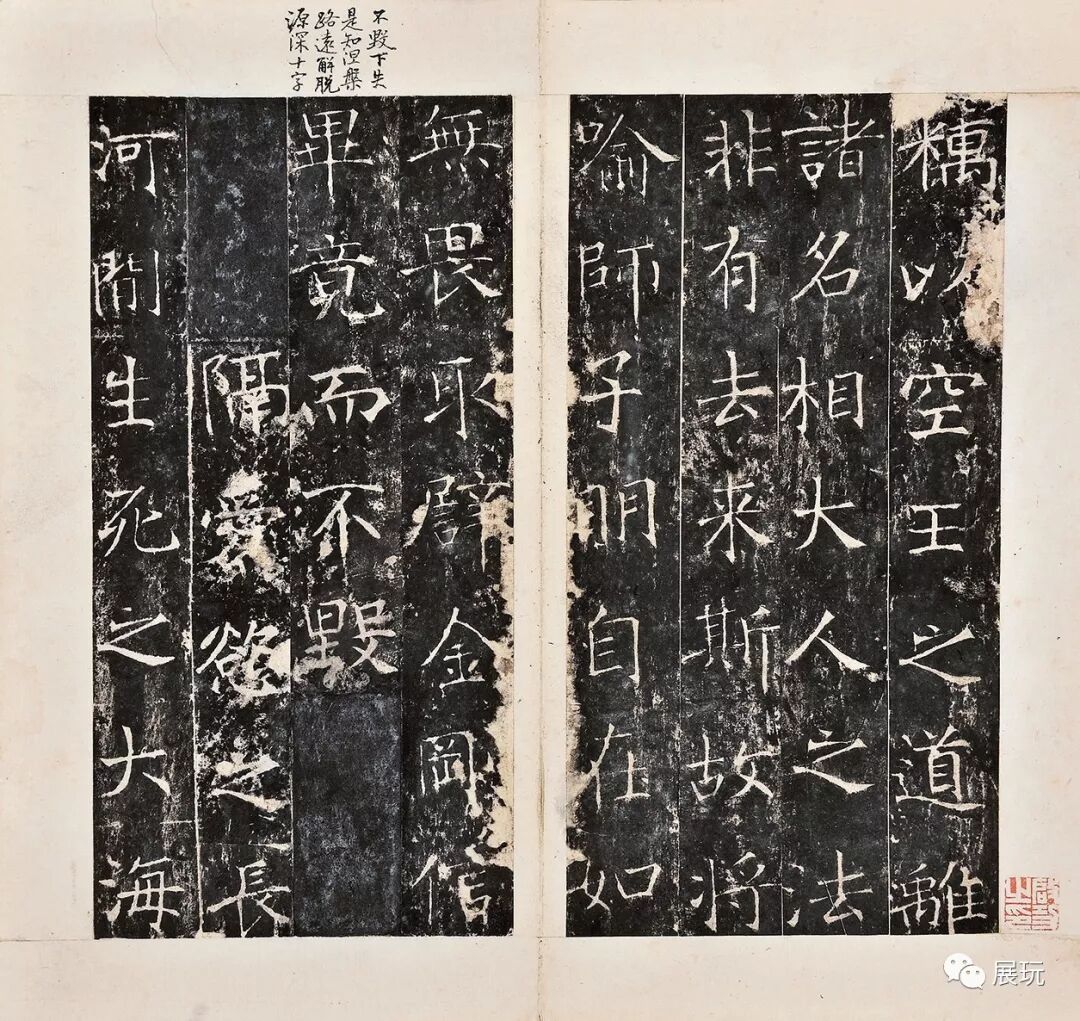 以空王之道離
諸名相大人之法
非有去來斯故將
喻師子明自在如
無畏取譬金剛信
畢竟而不毀
隔愛慾之長
河間生死之大海
不毀下失
是知涅槃
路遠解脫
源深十字
展玩